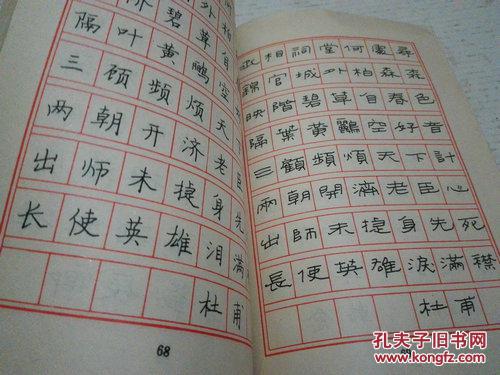 外柏
阶碧草自
隔叶黄鹂空
三顾频烦天
两朝开济老臣
出师未捷身先
长使英雄泪满
杜甫
68
丞相祠堂何處尋
錦官城外柏森森
映階碧草自春色
隔葉黃鸝空好音
三顧頻煩天下計
兩朝開濟老臣心
出師未捷身先死
長使英雄淚滿襟
杜甫
孔夫子旧书网
www.kongfz.com